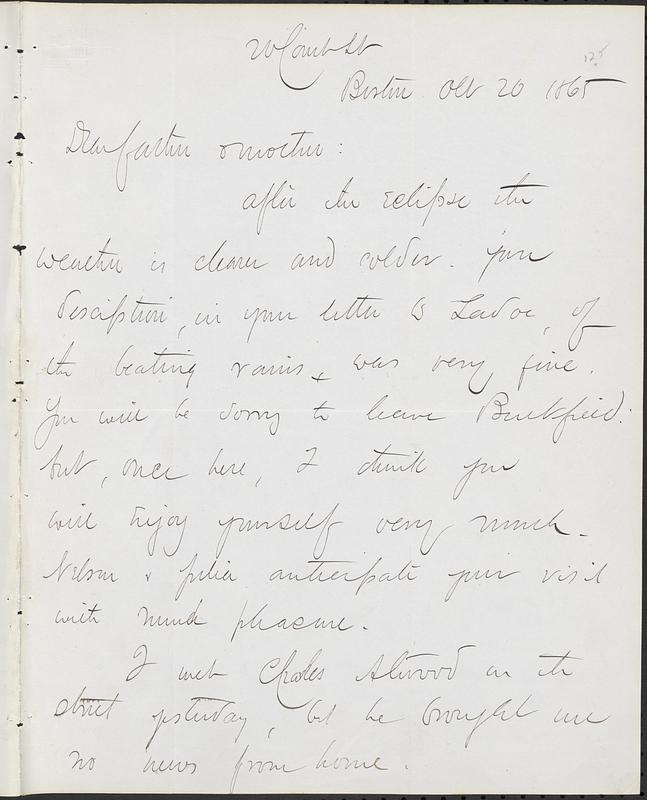 20 Court St
125
Boston Oct 20 1865
Dear father & mother:
after the eclipse the
weather is clearer and colder. Your
description, in your letter to Zadoc, of
the beating rains, was very fine.
You will be sorry to leave Buckfield:
but, once here, I think you
will enjoy yourself very much.
Nelson & Julia anticipate your visit
with much pleasure.
I met Charles Atwood in the
street yesterday, but he brought me
no news from home.